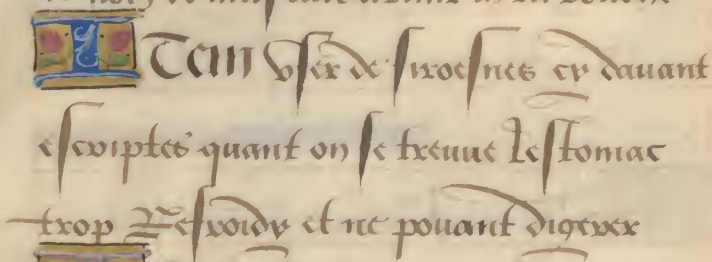 ITem vser de siroesnes cy dauant
escriptes quant on se treuue lestomac
trop Refroidy et ne pouant digerer